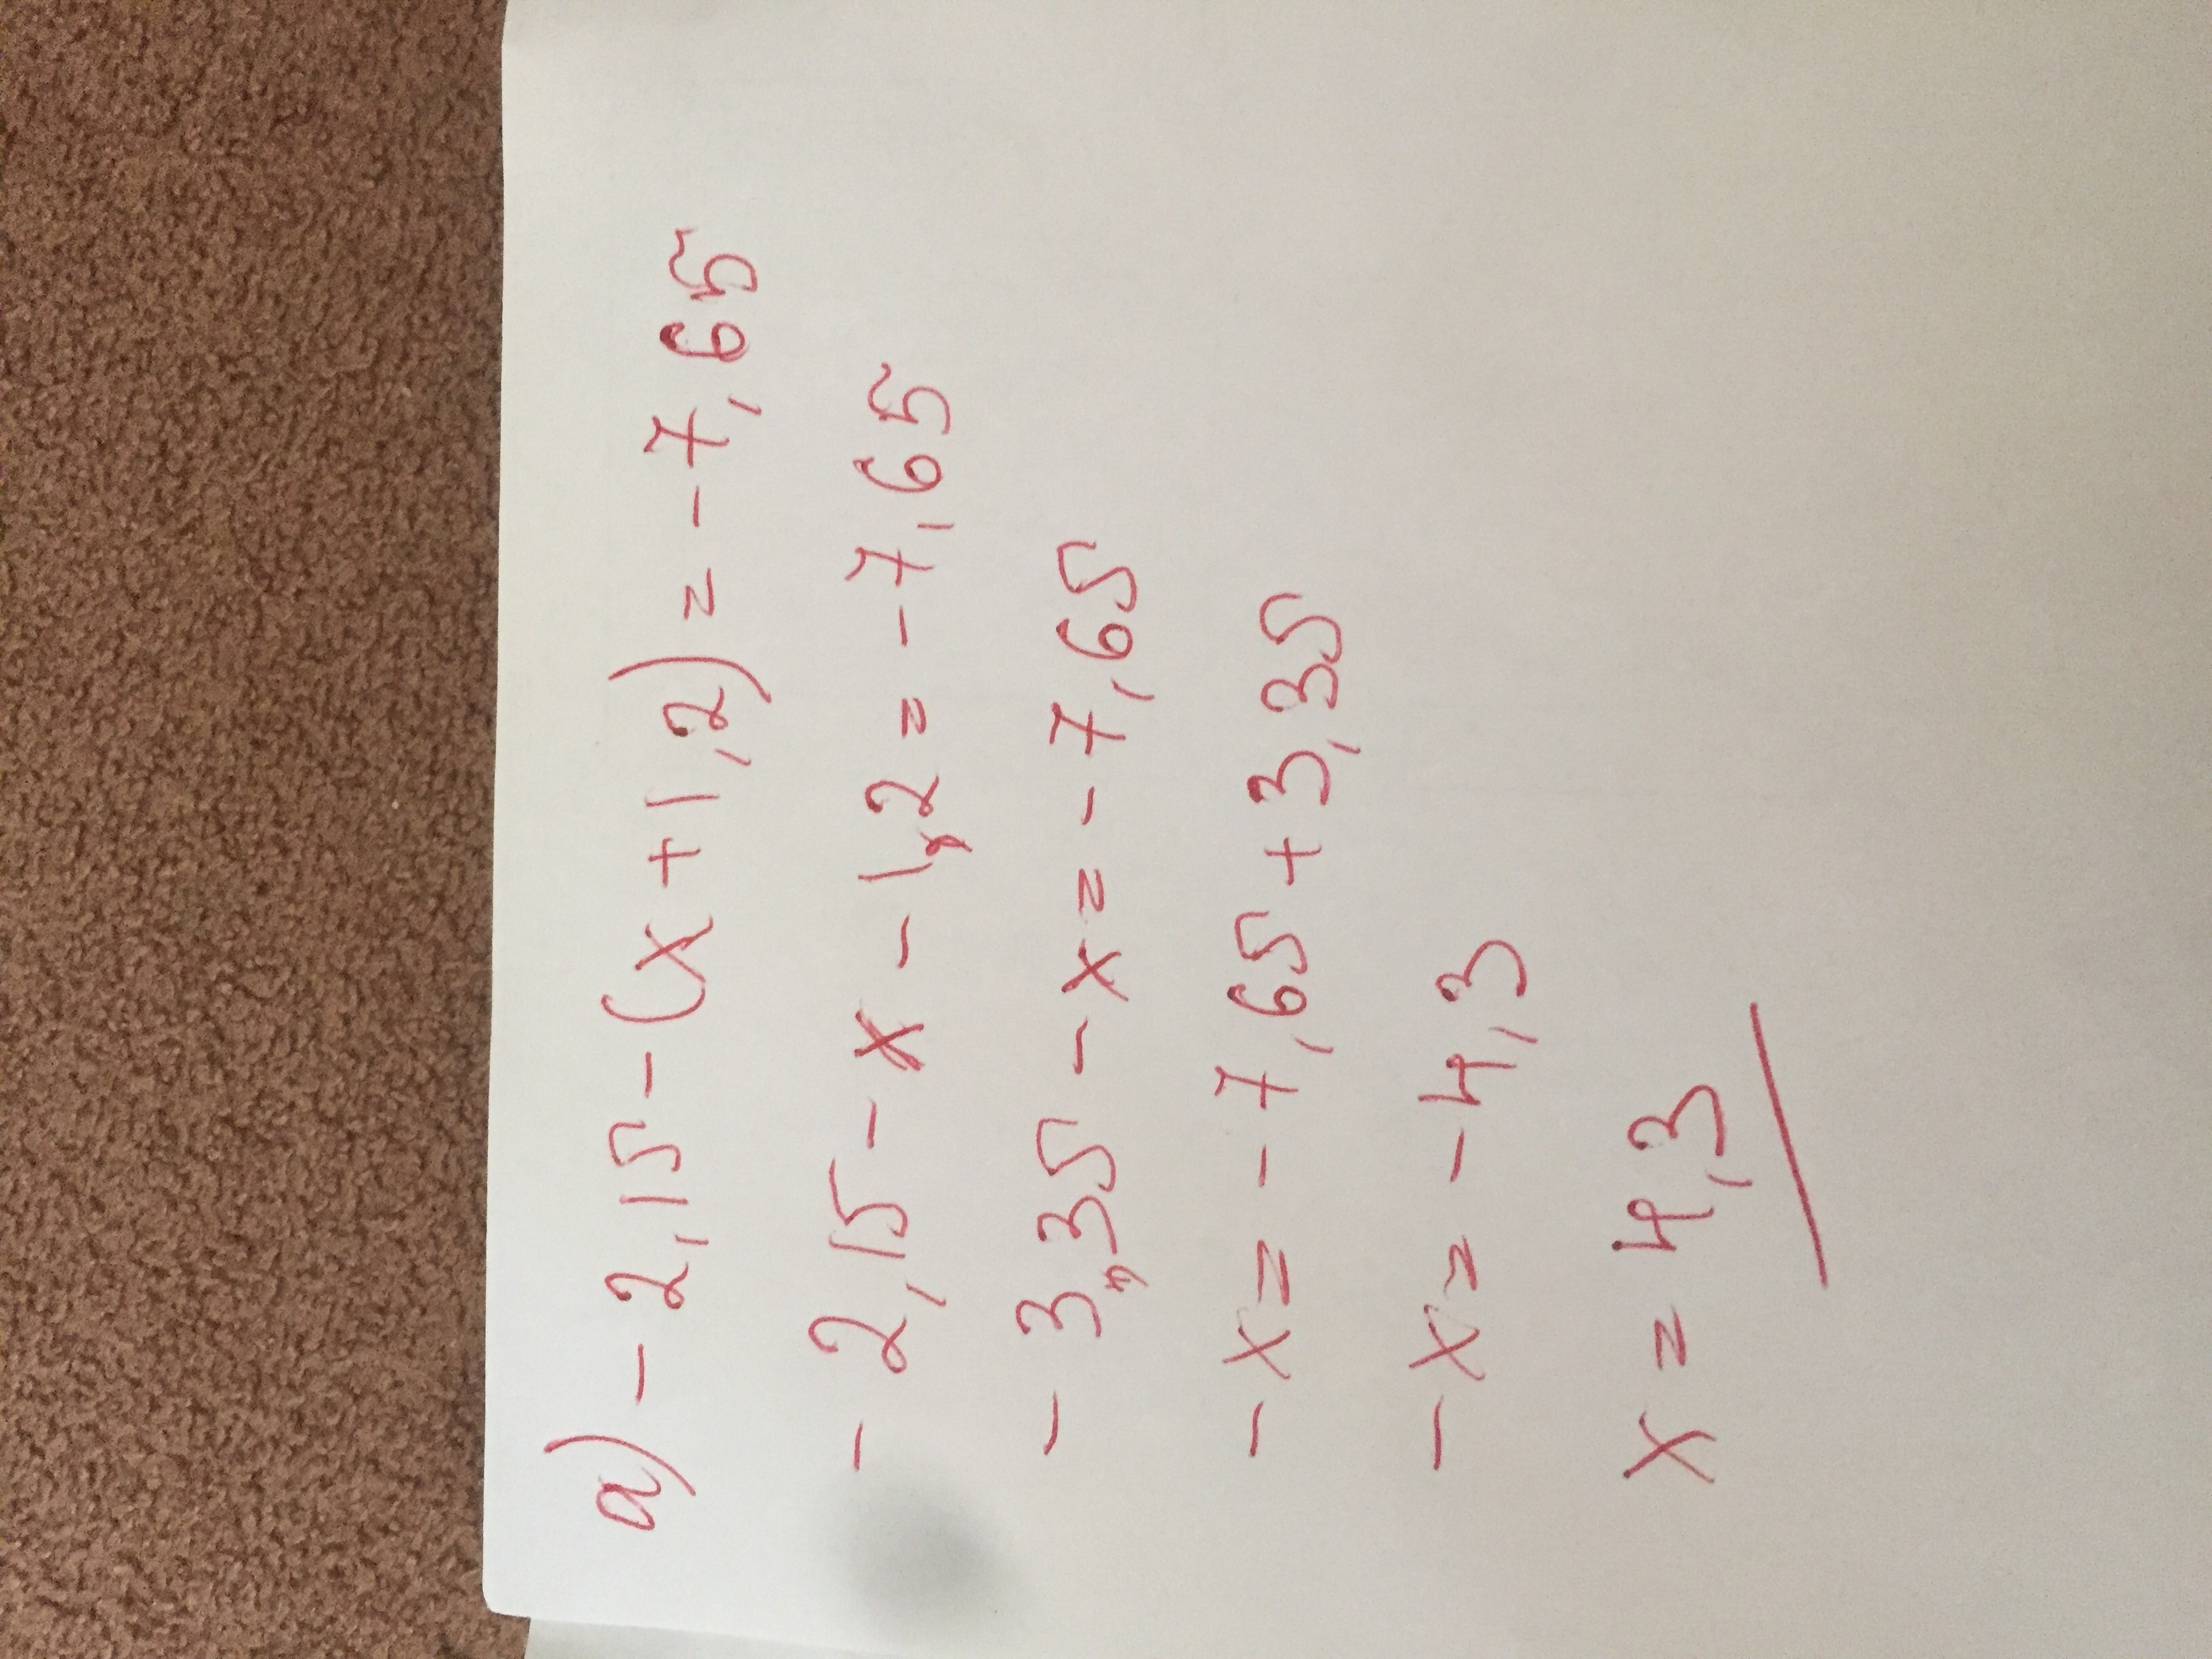 a) - 2,15 - (x + 1,2) = - 7,65
- 2,15 - x - 1,2 = - 7,65
- 3,35 - x = - 7,65
- x = - 7,65 + 3,35
- x = - 4,3
x = 4,3